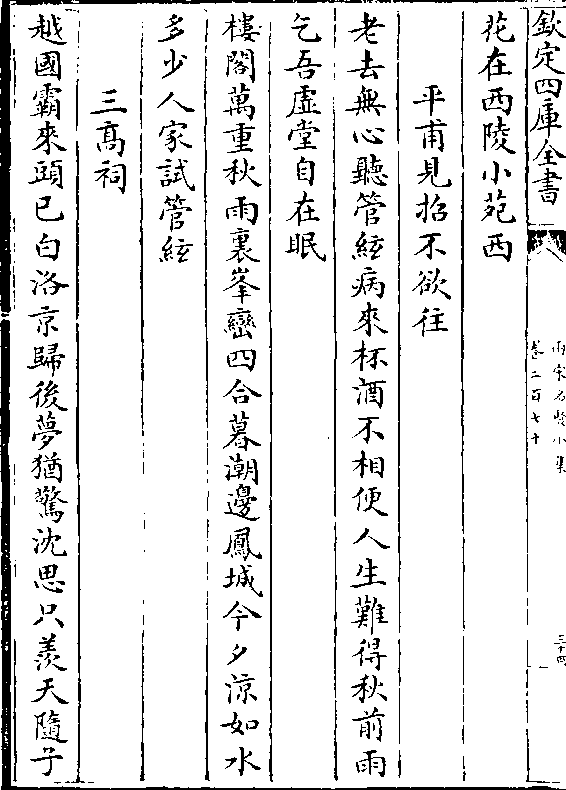 欽定四庫全書
兩宋名賢小集
卷二百七十
三十四
花在西陵小苑西
平甫見招不欲往
老去無心聽管絃病來杯酒不相便人生難得秋前雨
乞吾虚堂自在眠
樓閣萬重秋雨裏峯巒四合暮潮邊鳳城今夕涼如水
多少人家試管絃
三髙祠
越國霸來頭已白洛京歸後夢猶驚沈思只羨天隨子